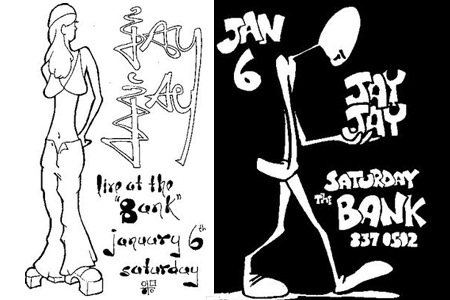 Jay
live at the
"Bank"
january 6th
saturday
JAN
6
JAY
JAY
SATURDAY
THE BANK
837